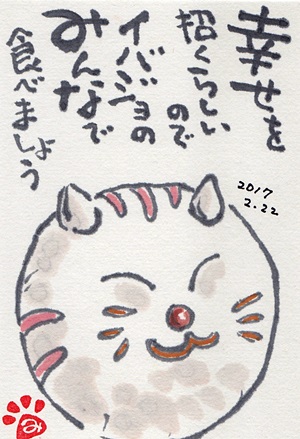 幸せを
招くらしい
ので
イバジョの
みんなで
食べましょう
2017
2.22
み